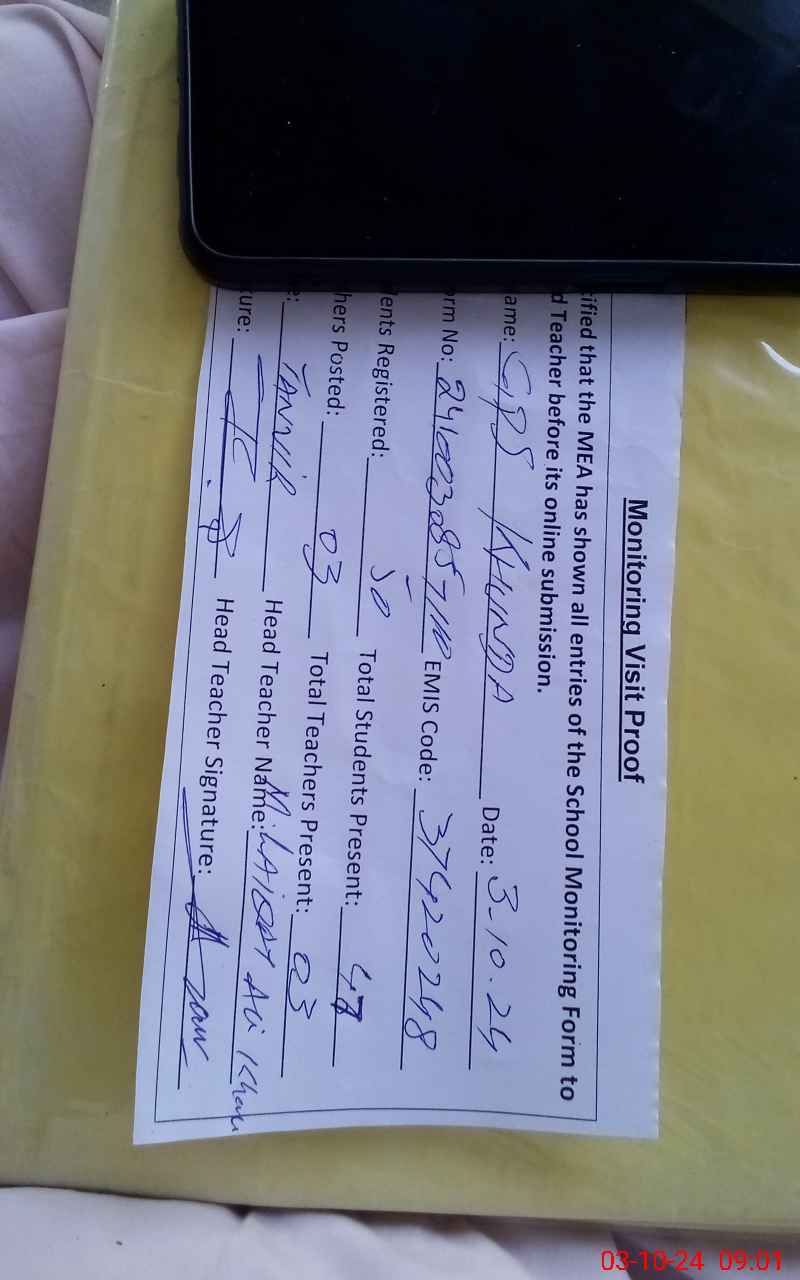 Monitoring Visit Proof
ified that the MEA has shown all entries of the School Monitoring Form to
d Teacher before its online submission.
ame: GPS KHUNDA Date: 3-10.24
rm No: EMIS Code: 37420248
ents Registered: 50 Total Students Present: 47
hers Posted: 03 Total Teachers Present: 03
e: TANVIR Head Teacher Name: M. LAIQAT Ali Khan
ure: Head Teacher Signature:
03-10-24 09:01